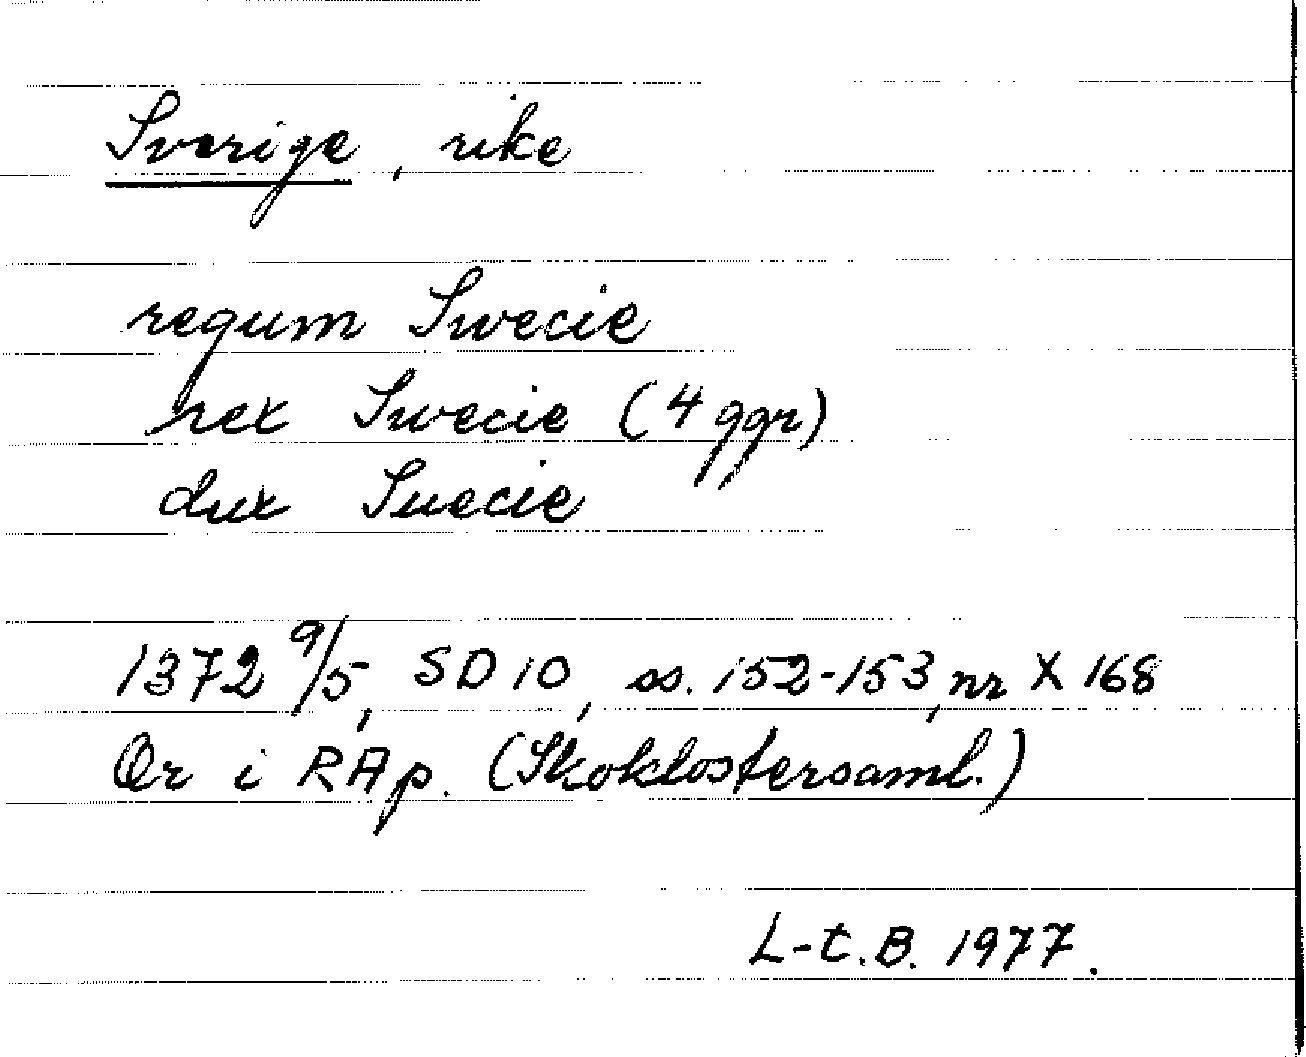 Sverige, rike
regum Swecie
rex Swecie (4 ggr)
dux Suecie
1372 9/5, SD 10, ss. 152-153, nr X 168
Or i RAp. (Skoklostersaml.)
L-C.B. 1977.